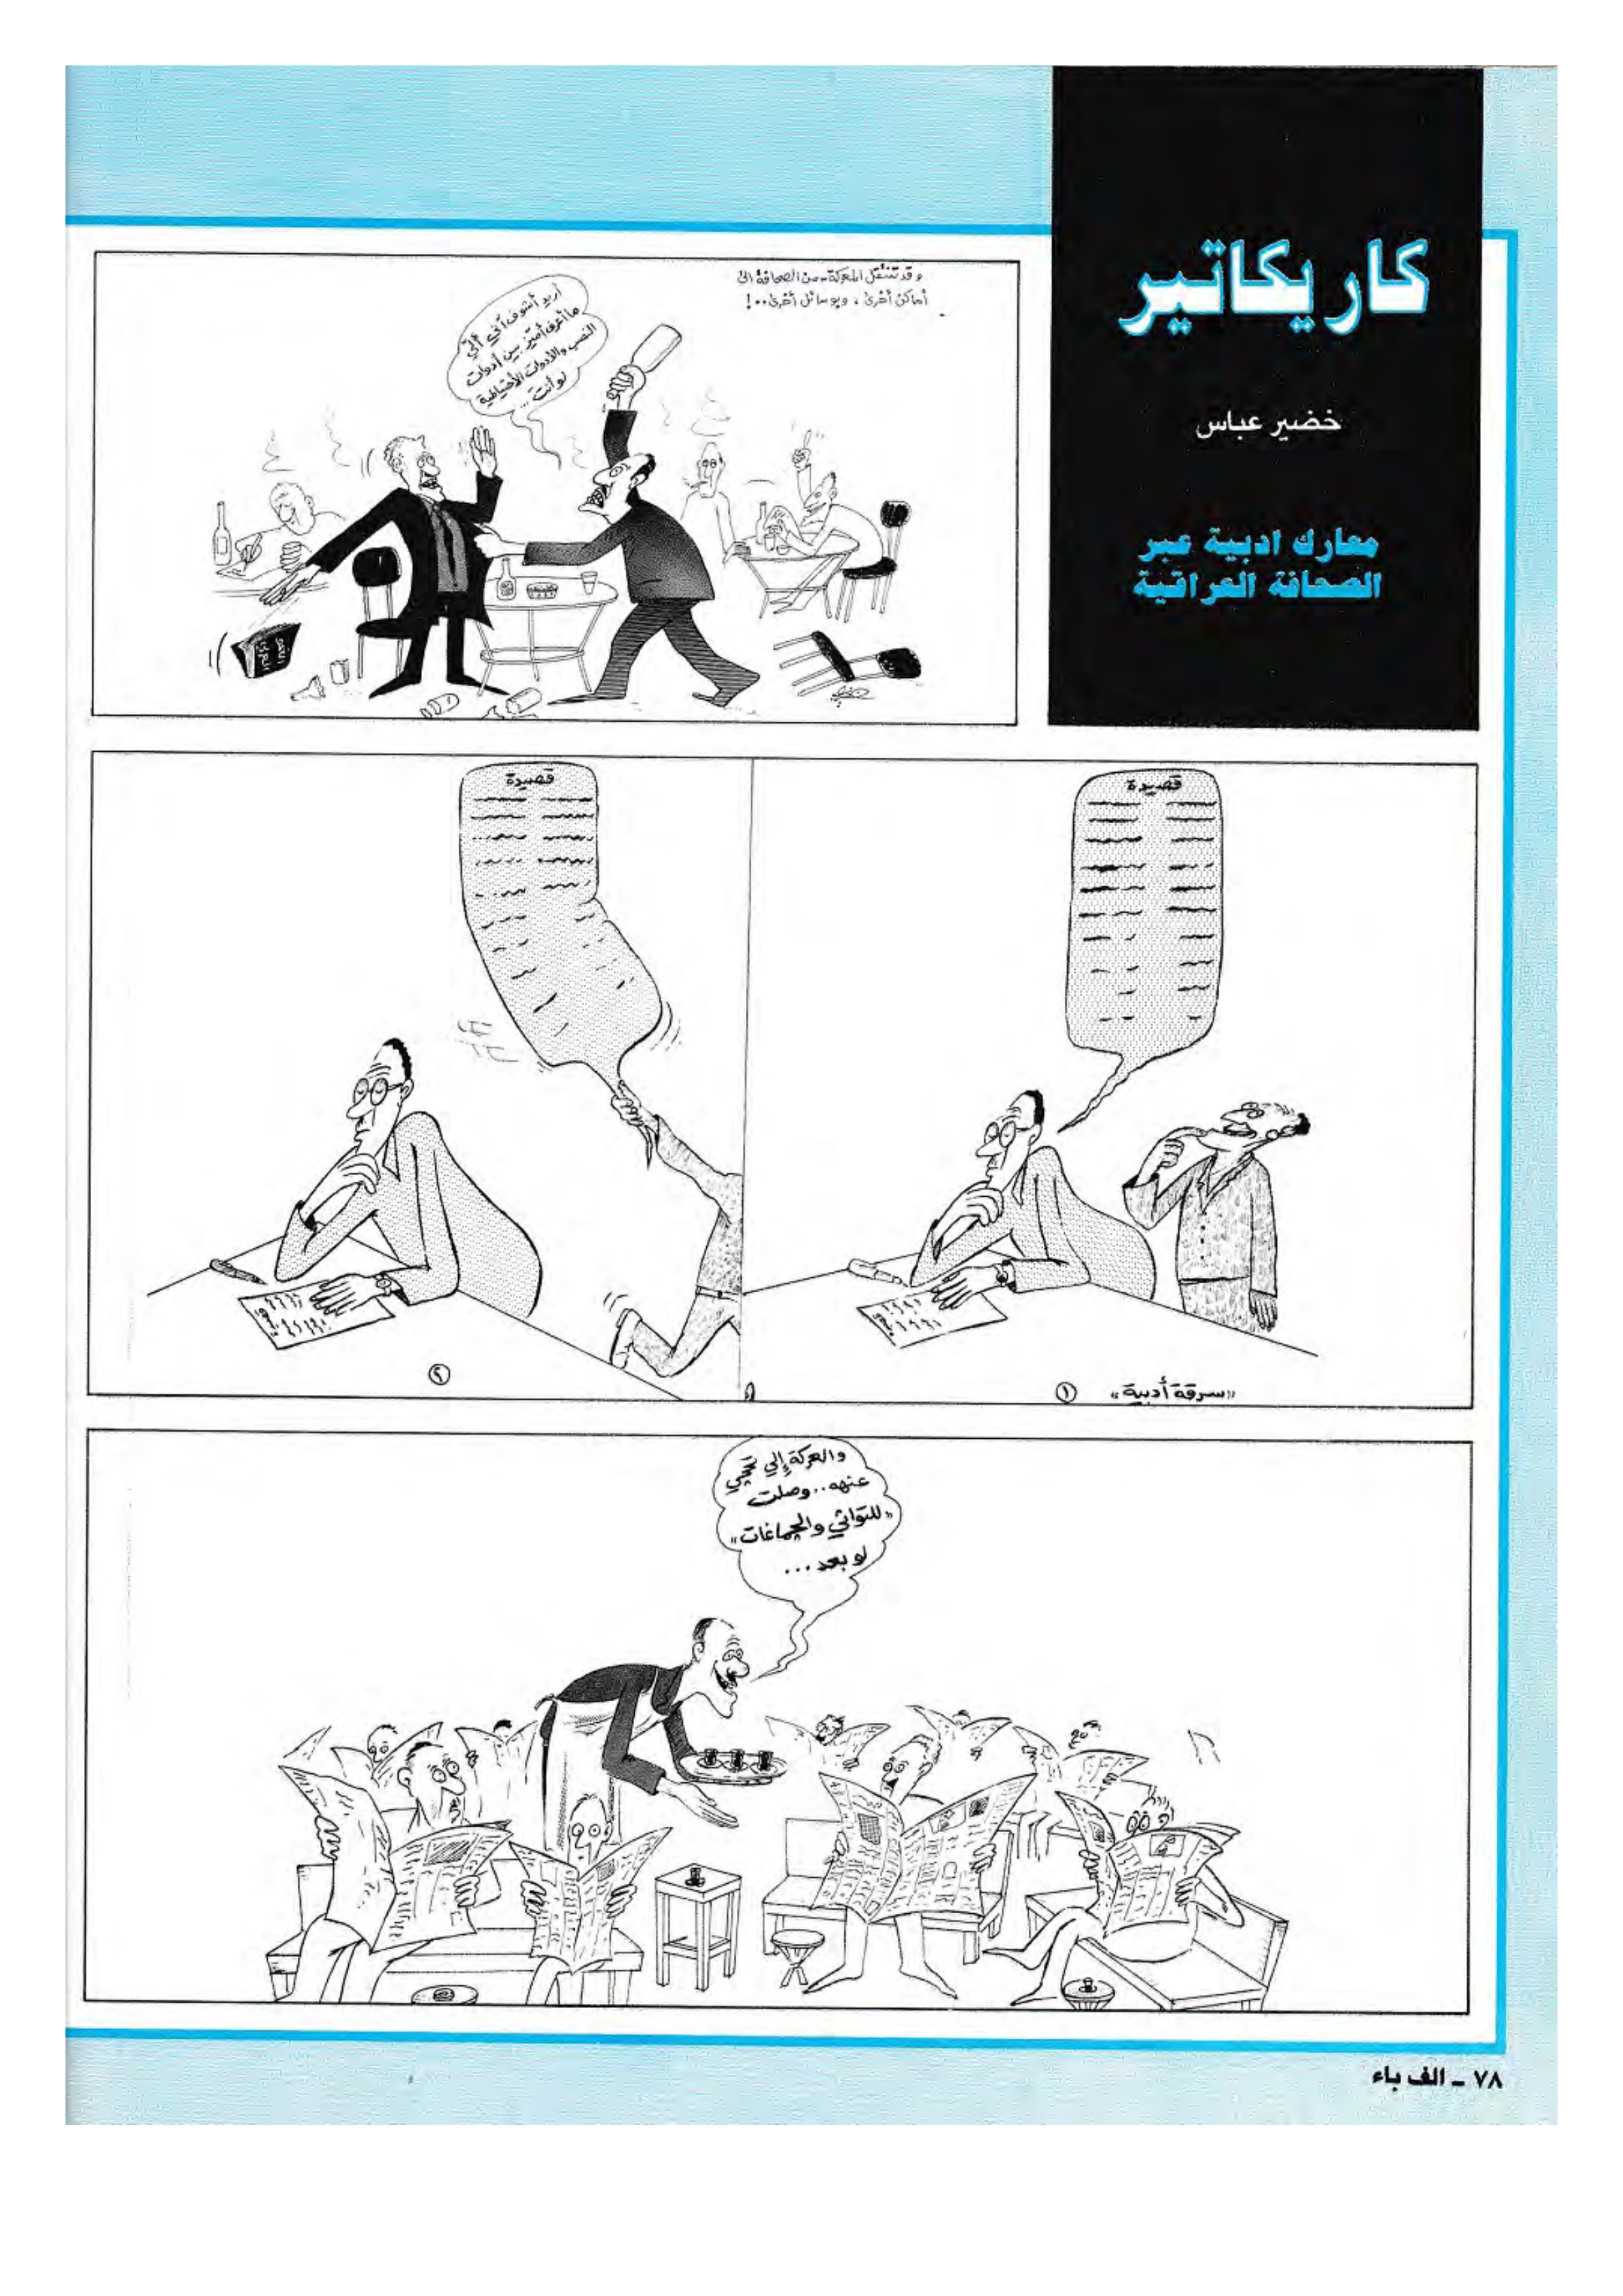 كاريكاتير
خضير عباس
معارك ادبية عبر
الصحافة العراقية
وقد تنتقل المعركة من الصحافة الى
أماكن أخرى ، وبوسائل أخرى..!
أريد أشوف آني إلّي
ما أعرف أميّز بين أدوات
النصب والأدوات الأحتياطية
لو أنت...
قصيدة
«سرقة أدبية» ١
قصيدة
٢
والعركة إلي تحچي
عنهه.. وصلت
«للتواثي والچماغات»
لو بعد...
٧٨ ـ الف باء